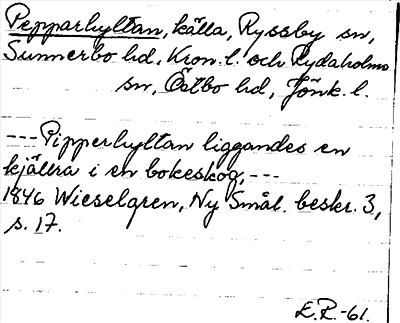 Pepparhyltan, källa, Ryssby sn,
Sunnerbo hd, Kron. l. och Rydaholms
sn, Östbo hd, Jönk. l.
---Pipperhyltan liggandes en
kjällra i en bokeskog,---
1846 Wieselgren, Ny Smål. beskr. 3,
s. 17.
E.R.-61.